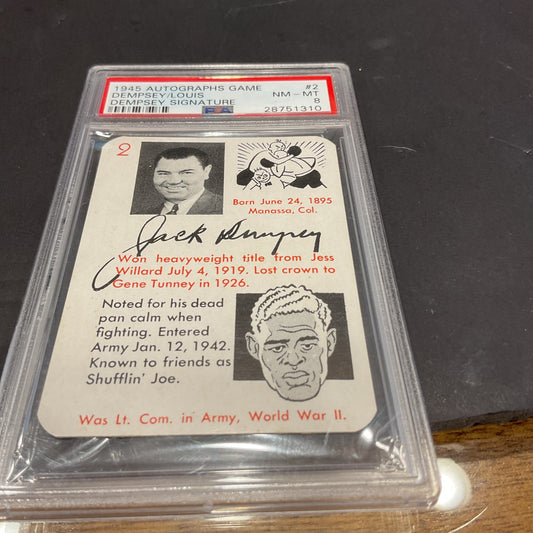 1945 AUTOGRAPHS GAME #2
DEMPSEY/LOUIS NM - MT
DEMPSEY SIGNATURE PSA 8
28751310
2
Born June 24, 1895
Manassa, Col.
Jack Dempsey
Won heavyweight title from Jess
Willard July 4, 1919. Lost crown to
Gene Tunney in 1926.
Noted for his dead
pan calm when
fighting. Entered
Army Jan. 12, 1942.
Known to friends as
Shufflin' Joe.
Was Lt. Com. in Army, World War II.